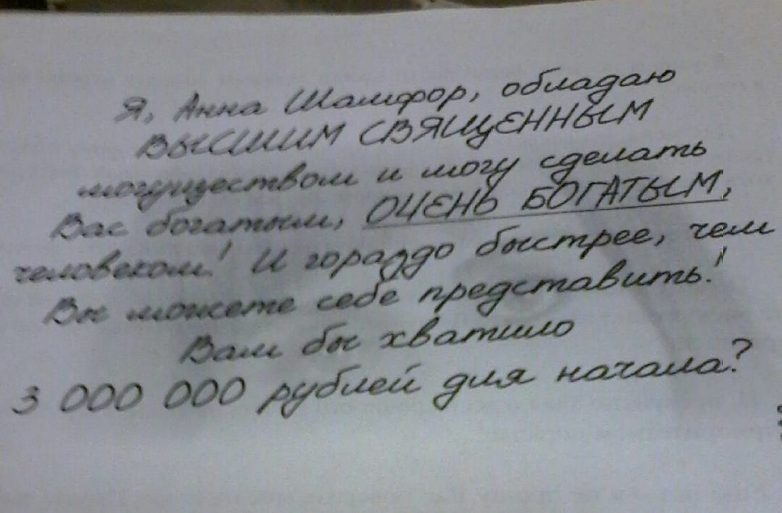 Я, Анна Шамфор, обладаю
ВЫСШИМ СВЯЩЕННЫМ
могуществом и могу сделать
Вас богатым, ОЧЕНЬ БОГАТЫМ,
человеком! И гораздо быстрее, чем
Вы можете себе представить!
Вам бы хватило
3 000 000 рублей для начала?